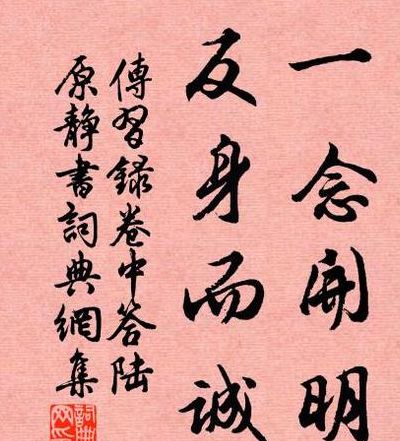 一念開明
反身而誠
傳習録卷中答陸
原静書詞典網集